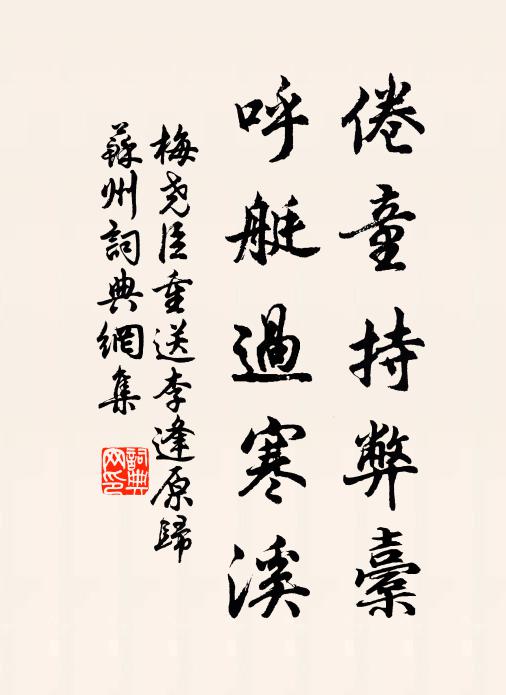 倦童持弊橐
呼艇過寒溪
梅堯臣重送李逢原歸
蘇州詞典網集
詞典
网印